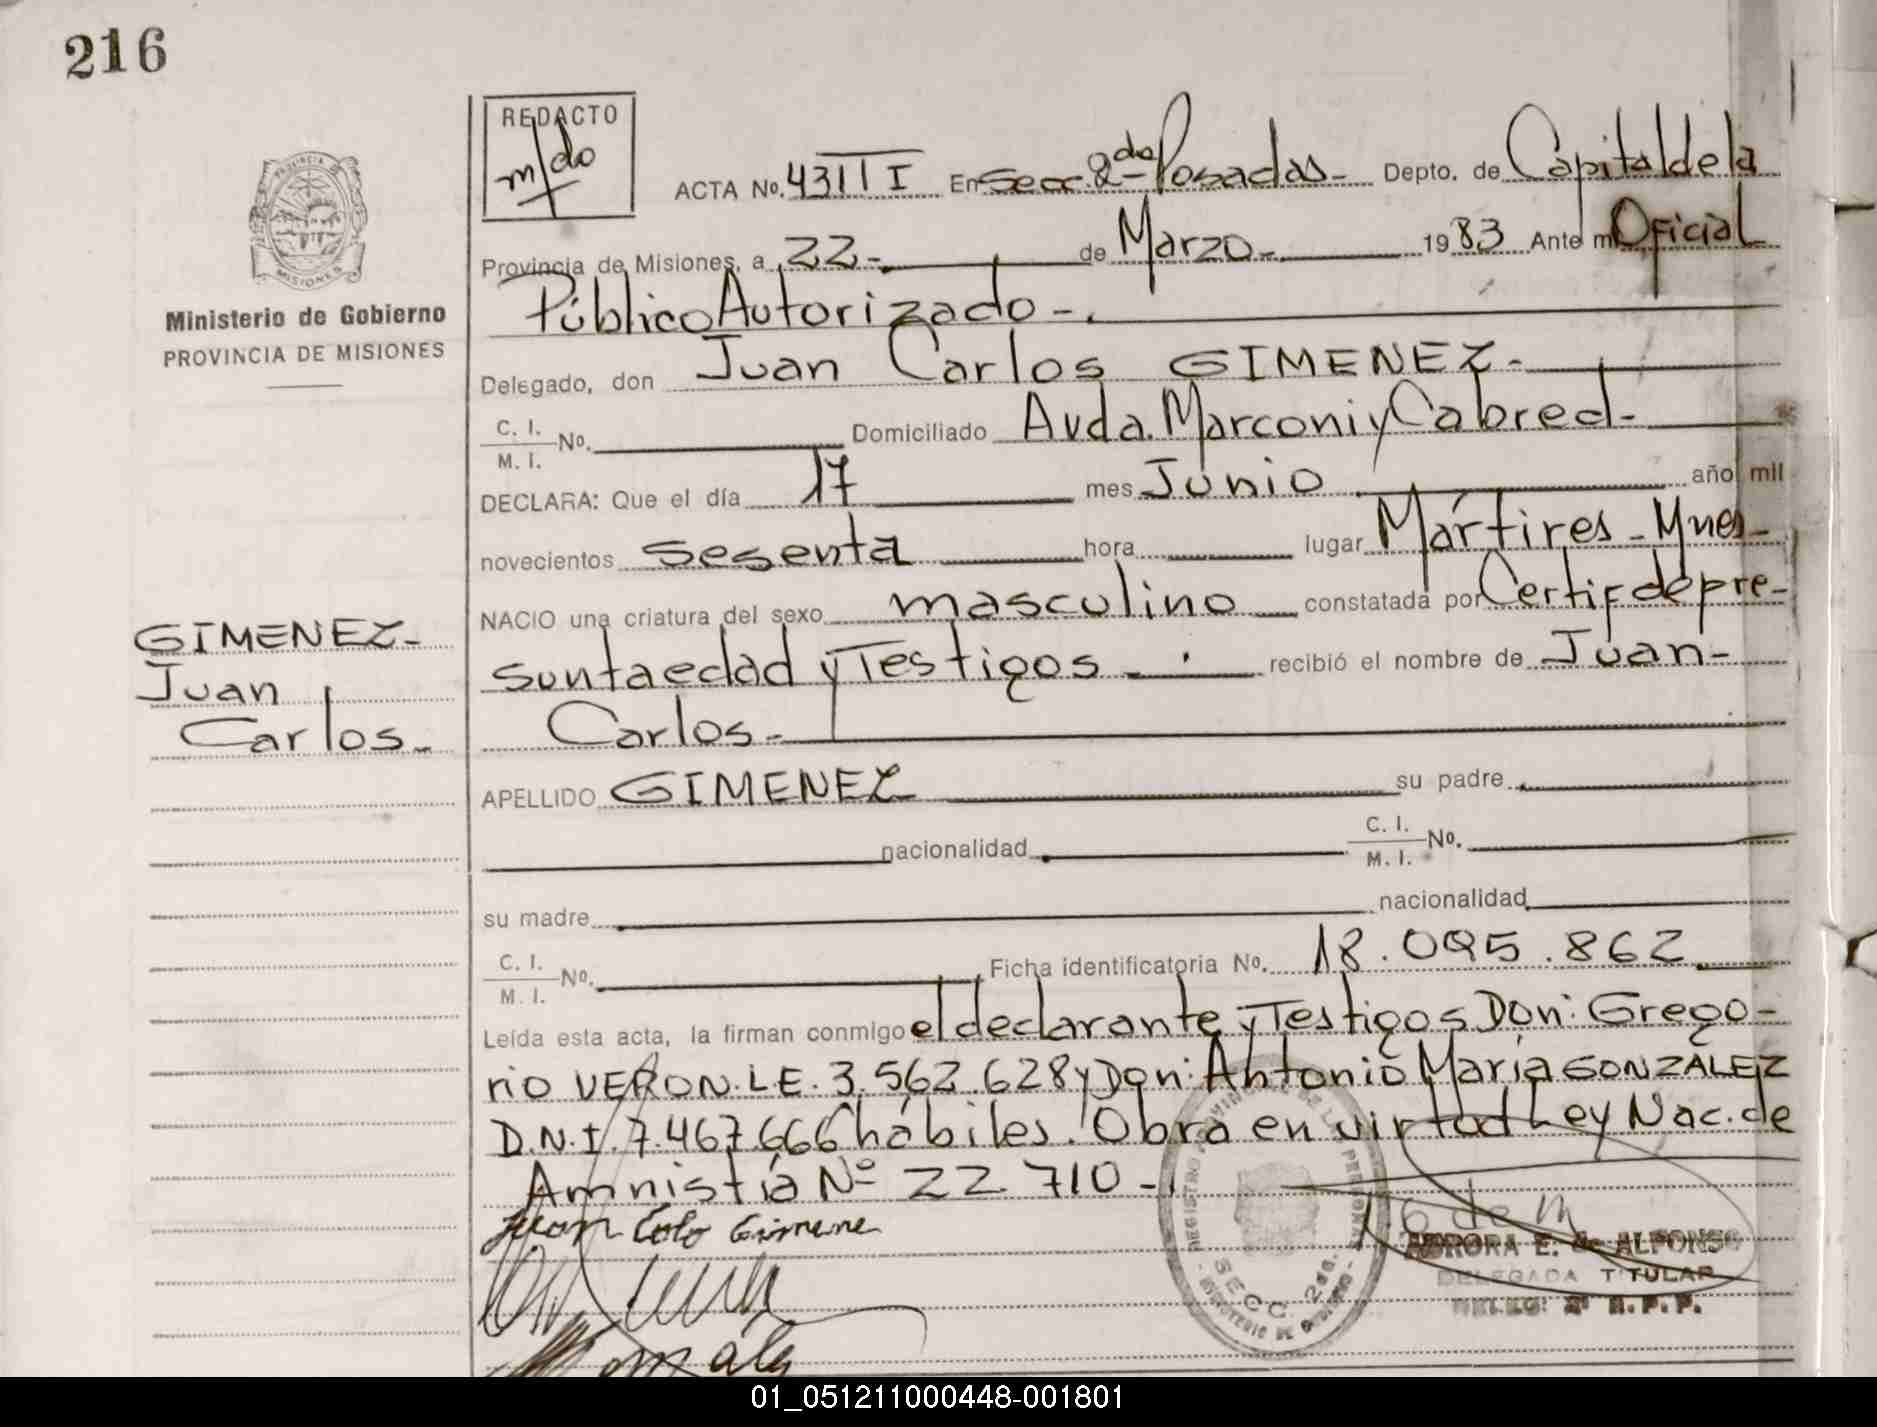 216
REDACTO
m/do
ACTA No. 43111 I En Secc. 2da Posadas- Depto. de Capital de la
Provincia de Misiones, a 22- de Marzo- 1983 Ante mi Oficial
Público Autorizado-.
PROVINCIA DE MISIONES
Ministerio de Gobierno
PROVINCIA DE MISIONES
Delegado, don Juan Carlos GIMENEZ-
C. I.
M. I. No. Domiciliado Avda. Marconi y Cabred-
DECLARA: Que el día 17 mes Junio año mil
novecientos sesenta hora lugar Mártires - Mnes-
NACIO una criatura del sexo masculino constatada por Certif de pre-
sunta edad y Testigos - recibió el nombre de Juan-
Carlos-
GIMENEZ-
Juan
Carlos-
APELLIDO GIMENEZ su padre
nacionalidad C. I.
M. I. No.
su madre nacionalidad
C. I.
M. I. No. Ficha identificatoria No. 18.095.862
Leída esta acta, la firman conmigo el declarante y Testigos Don: Grego-
rio VERON. L.E. 3.562.628 y Don: Antonio María GONZALEZ
D.N.I. 7.467.666 hábiles. Obra en virtud Ley Nac. de
Amnistía Nº 22.710-.
Juan Gimene
REGISTRO PROVINCIAL DE LAS PERSONAS
SECC. 2da.
MINISTERIO DE GOBIERNO
6 de m
AURORA E. de ALFONSO
DELEGADA TITULAR
DELEG. 2ª R.P.P.
01_051211000448-001801